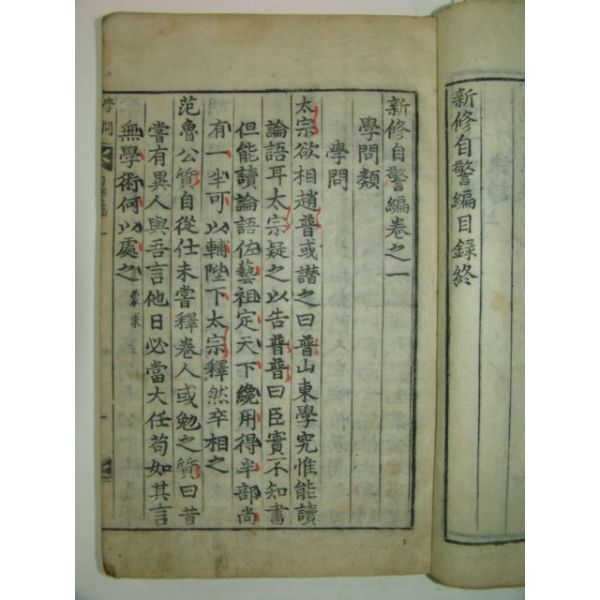 新修自警編目録終
新修自警編卷之一
學問類
學問
太宗欲相趙普或譖之曰普山東學究惟能讀
論語耳太宗疑之以告普普曰臣實不知書
但能讀論語佐藝祖定天下纔用得半部尚
有一半可以輔陛下太宗釋然卒相之
范魯公質自從仕未嘗釋卷人或勉之質曰昔
嘗有異人與吾言他日必當大任苟如其言
無學術何以處之 蒙求